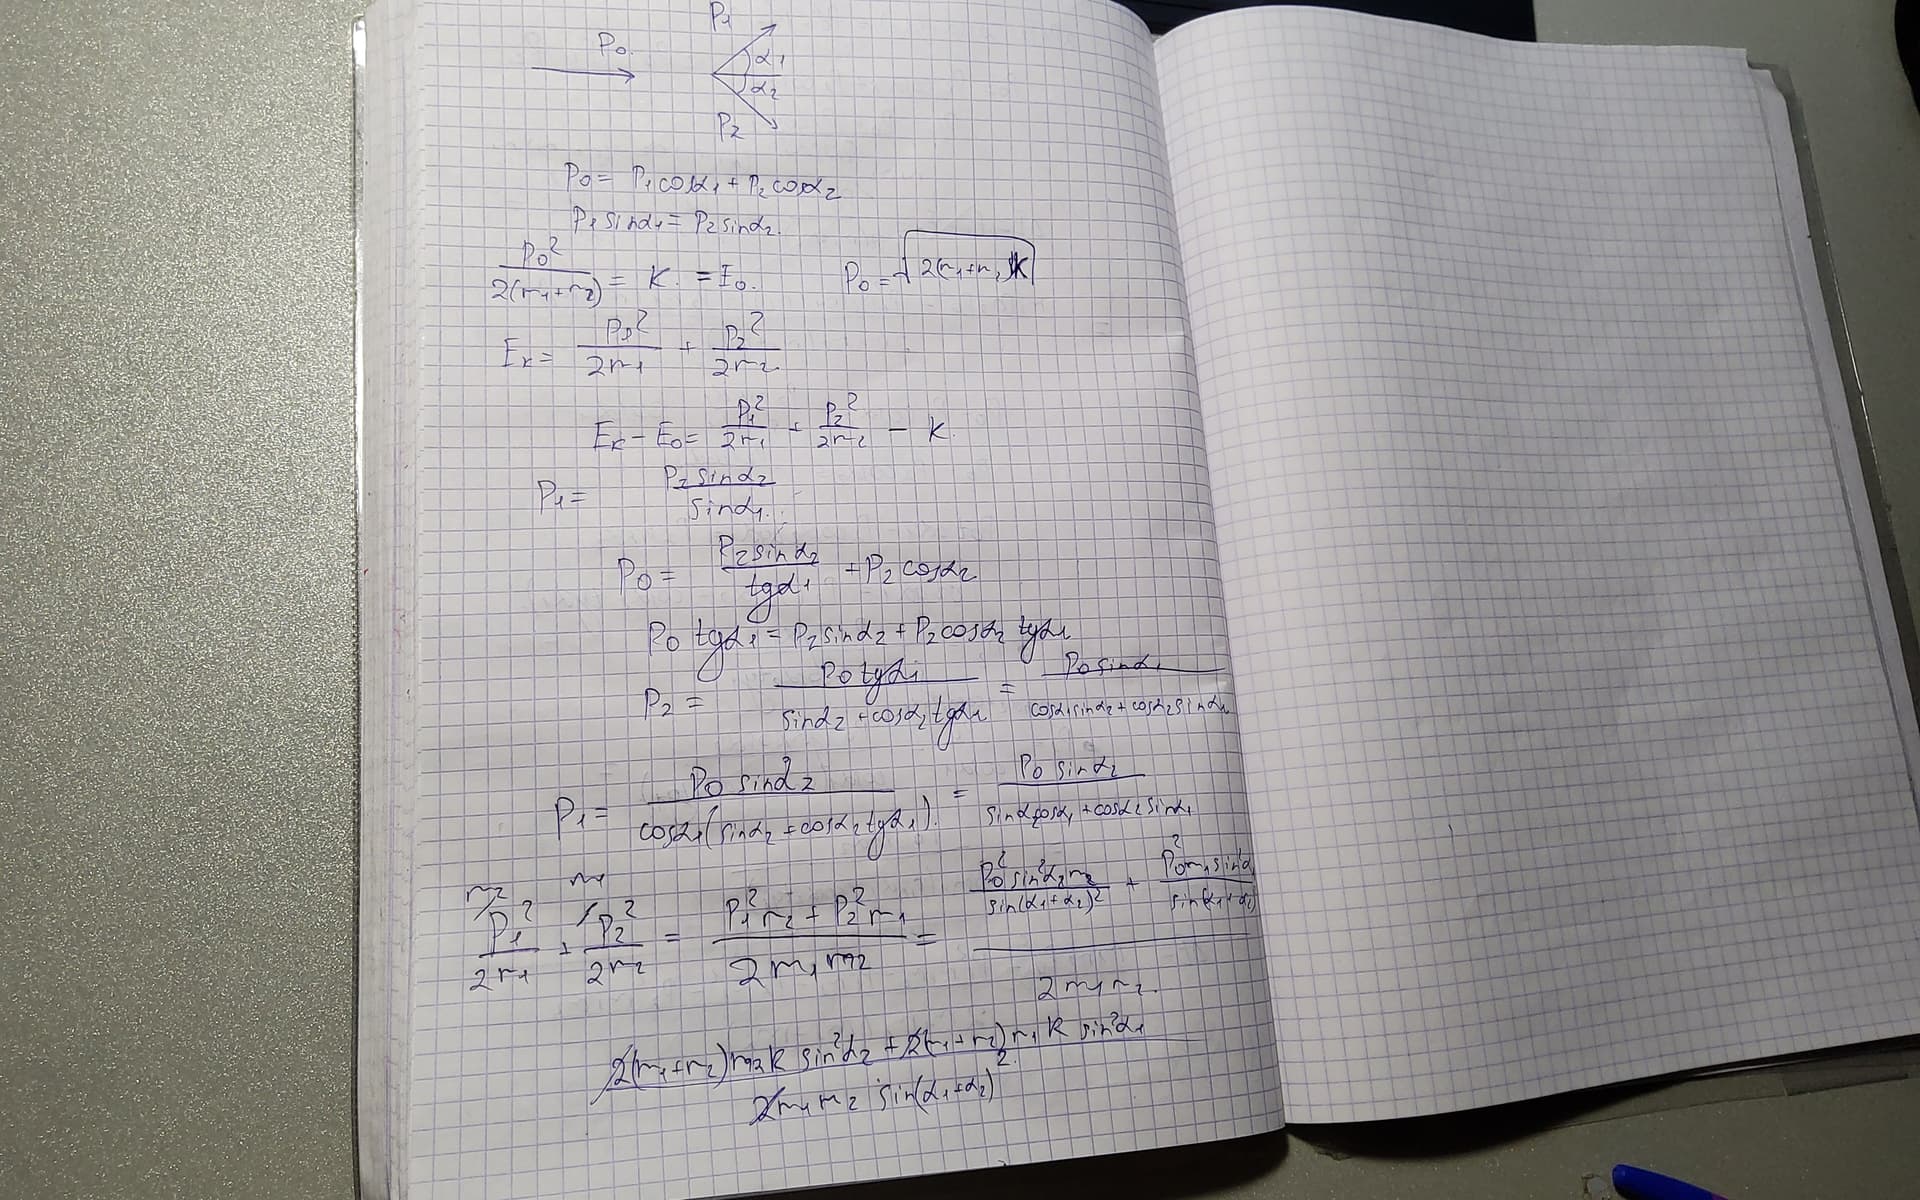 P₁
P₀
α₁
α₂
P₂
P₀ = P₁cosα₁ + P₂cosα₂
P₁sinα₁ = P₂sinα₂.
P₀²/2(m₁+m₂) = K. = E₀. P₀ = √2(m₁+m₂)K
Eₖ = P₁²/2m₁ + P₂²/2m₂
Eₖ - E₀ = P₁²/2m₁ + P₂²/2m₂ - K.
P₁ = P₂sinα₂/sinα₁.
P₀ = P₂sinα₂/tgα₁ + P₂cosα₂
P₀ tgα₁ = P₂sinα₂ + P₂cosα₂ tgα₁
P₂ = P₀tgα₁/sinα₂ + cosα₂tgα₁ = P₀sinα₁/cosα₁sinα₂ + cosα₂sinα₁
P₁ = P₀ sinα₂/cosα₁(sinα₂ + cosα₂tgα₁). = P₀ sinα₂/sinα₂cosα₁ + cosα₂sinα₁
m₂ m₁
P₁²/2m₁ + P₂²/2m₂ = P₁²m₂ + P₂²m₁/2m₁m₂ = P₀²sin²α₂m₂/sin(α₁+α₂)² + P₀²m₁sin²α₁/sin(α₁+α₂)²/2m₁m₂.
2(m₁+m₂)m₂K sin²α₂ + 2(m₁+m₂)m₁K sin²α₁/2m₁m₂ sin(α₁+α₂)².